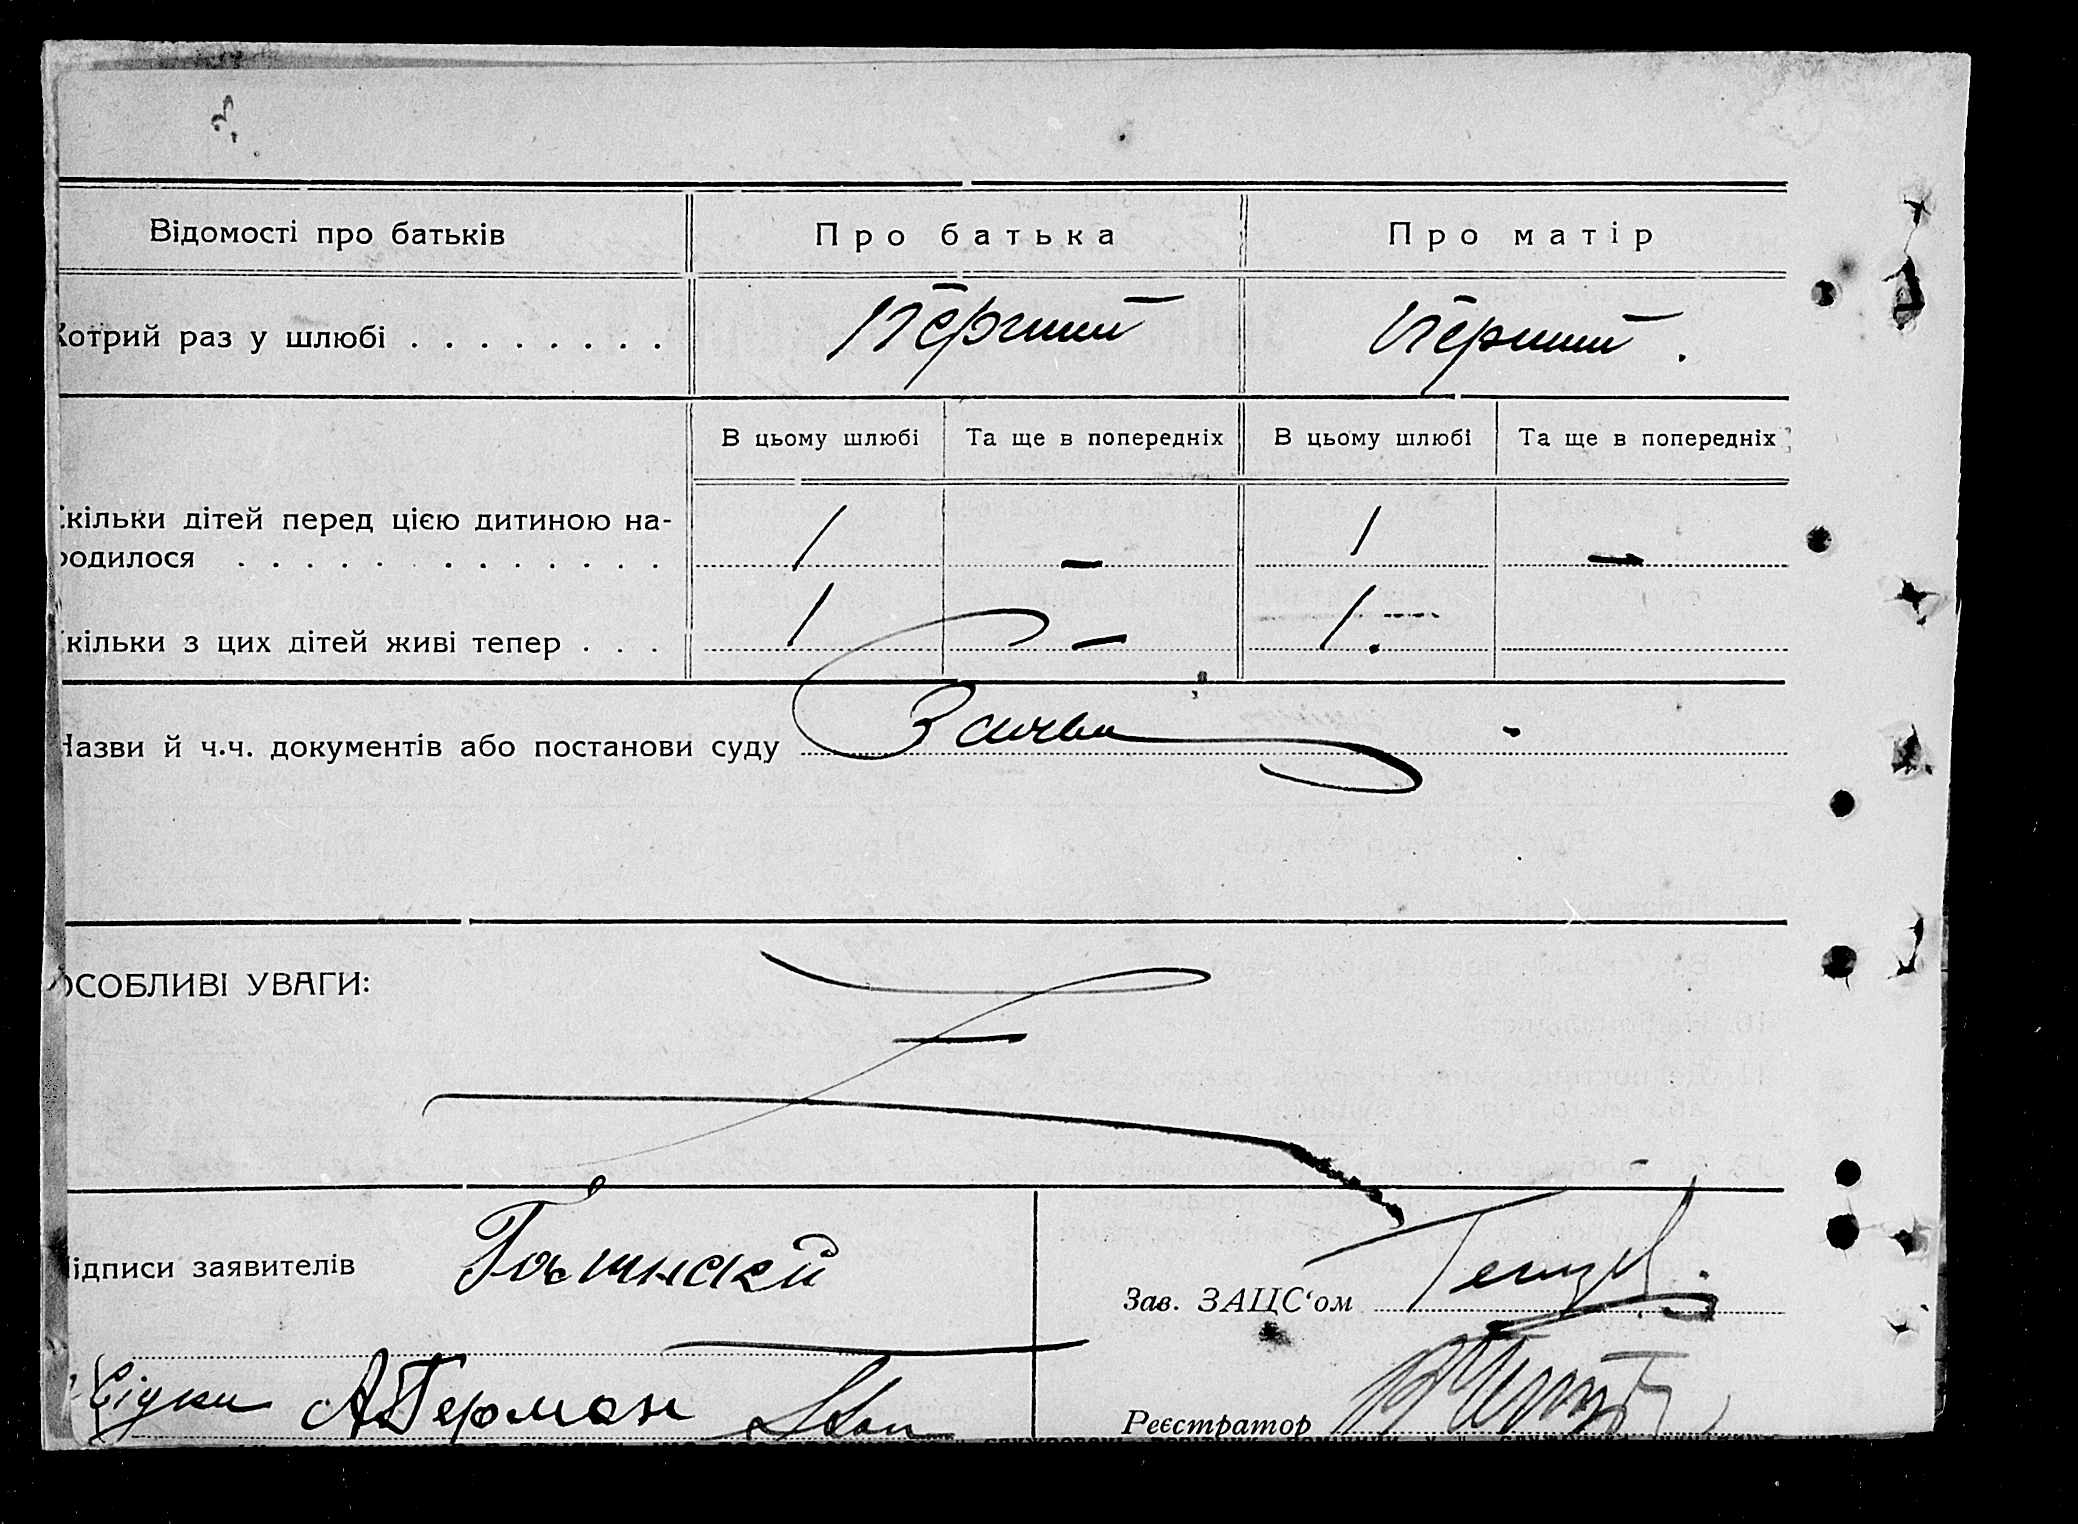 Відомості про батьків Про батька Про матір
Котрий раз у шлюбі . . . . . . . . Перший Перший .
В цьому шлюбі Та ще в попередніх В цьому шлюбі Та ще в попередніх
Скільки дітей перед цією дитиною на-
родилося . . . . . . . . . . . . . 1 — 1 —
Скільки з цих дітей живі тепер . . . 1 — 1.
Назви й ч.ч. документів або постанови суду
ОСОБЛИВІ УВАГИ:
—
Підписи заявителів
Зав. ЗАЦС‘ом
Свідки А Герман
Реєстратор